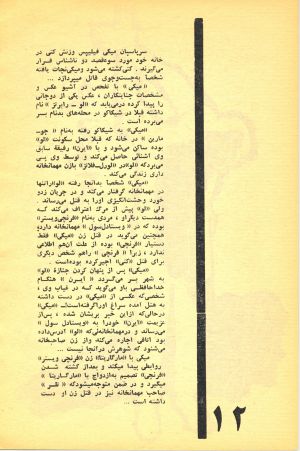 سرپاسبان میکی فیلیپس وزنش کتی در
خانه خود مورد سوءقصد دو ناشناس قرار
میگیرند . کتی کشته می‌شود و میکی نجات یافته
شخصاً به جست‌وجوی قاتل میپردازد ...
«میکی» با تفحص در آشیو عکس و
مشخصات جنایتکاران ، عکس یکی از دوجانی
را پیدا کرده درمی‌یابد که «لو ــ رابرتز» نام
داشته قبلا در شیکاگو در محله‌های بدنام بسر
می‌برده است .
«میکی» به شیکاگو رفته به‌نام « جو ــ
مارین » در خانه که قبلا محل سکونت «لو»
بوده ساکن میشود و با «ایرن» رفیقه سابق
وی آشنائی حاصل میکند و توسط وی پی
میبرد که «لو» در «لورل ــ فلاتز» بازن مهمانخانه
داری زندگی می‌کند .
«میکی» شخصا بدانجا رفته «لو» را تنها
در مهمانخانه گرفتار میکند و در جریان زد و
خورد وحشت‌انگیزی او را به قتل می‌رساند .
ولی «لو» پیش از مرگ اعتراف می‌کند که
همدست دیگر او ، مردی به‌نام «فرنچی ویستر»
بوده که در « ویستادل‌سول » مهمانخانه دارد و
همچنین می‌گوید در قتل زن «میکی» فقط
دستیار «فرنچی» بوده از علت آن هم اطلاعی
ندارد ، زیرا « فرنچی » را هم شخص دیگری
برای قتل «کتی» اجیر کرده بوده است .
«میکی» پس از پنهان کردن جنازهٔ «لو»
به شهر بر می‌گردد ، « ایرن » هنگام
خداحافظی باو میگوید که در غیاب وی ،
شخصی که عکسی از «میکی» در دست داشته
به هتل آمده سراغ او را گرفته است. «میکی»
درحالی‌که از این خبر پریشان شده ، پس از
عزیمت «ایرن» خود را به «ویستادل سول »
میرساند و در مهمانخانه‌ئی که «لو» آدرس‌داده
بود اتاقی اجاره می‌کند و از زن صاحبخانه
می‌شنود که شوهرش در آنجا نیست ...
میکی با «مارگاریتا» زن «فرنچی ویستر»
روابطی پیدا میکند و بعد از کشته شدن
«فرنچی» تصمیم به ازدواج با «مارگاریتا »
میگیرد و در ضمن متوجه میشود که «
صاحب مهمانخانه نیز در قتل زن او دست
داشته است ...
۱۲